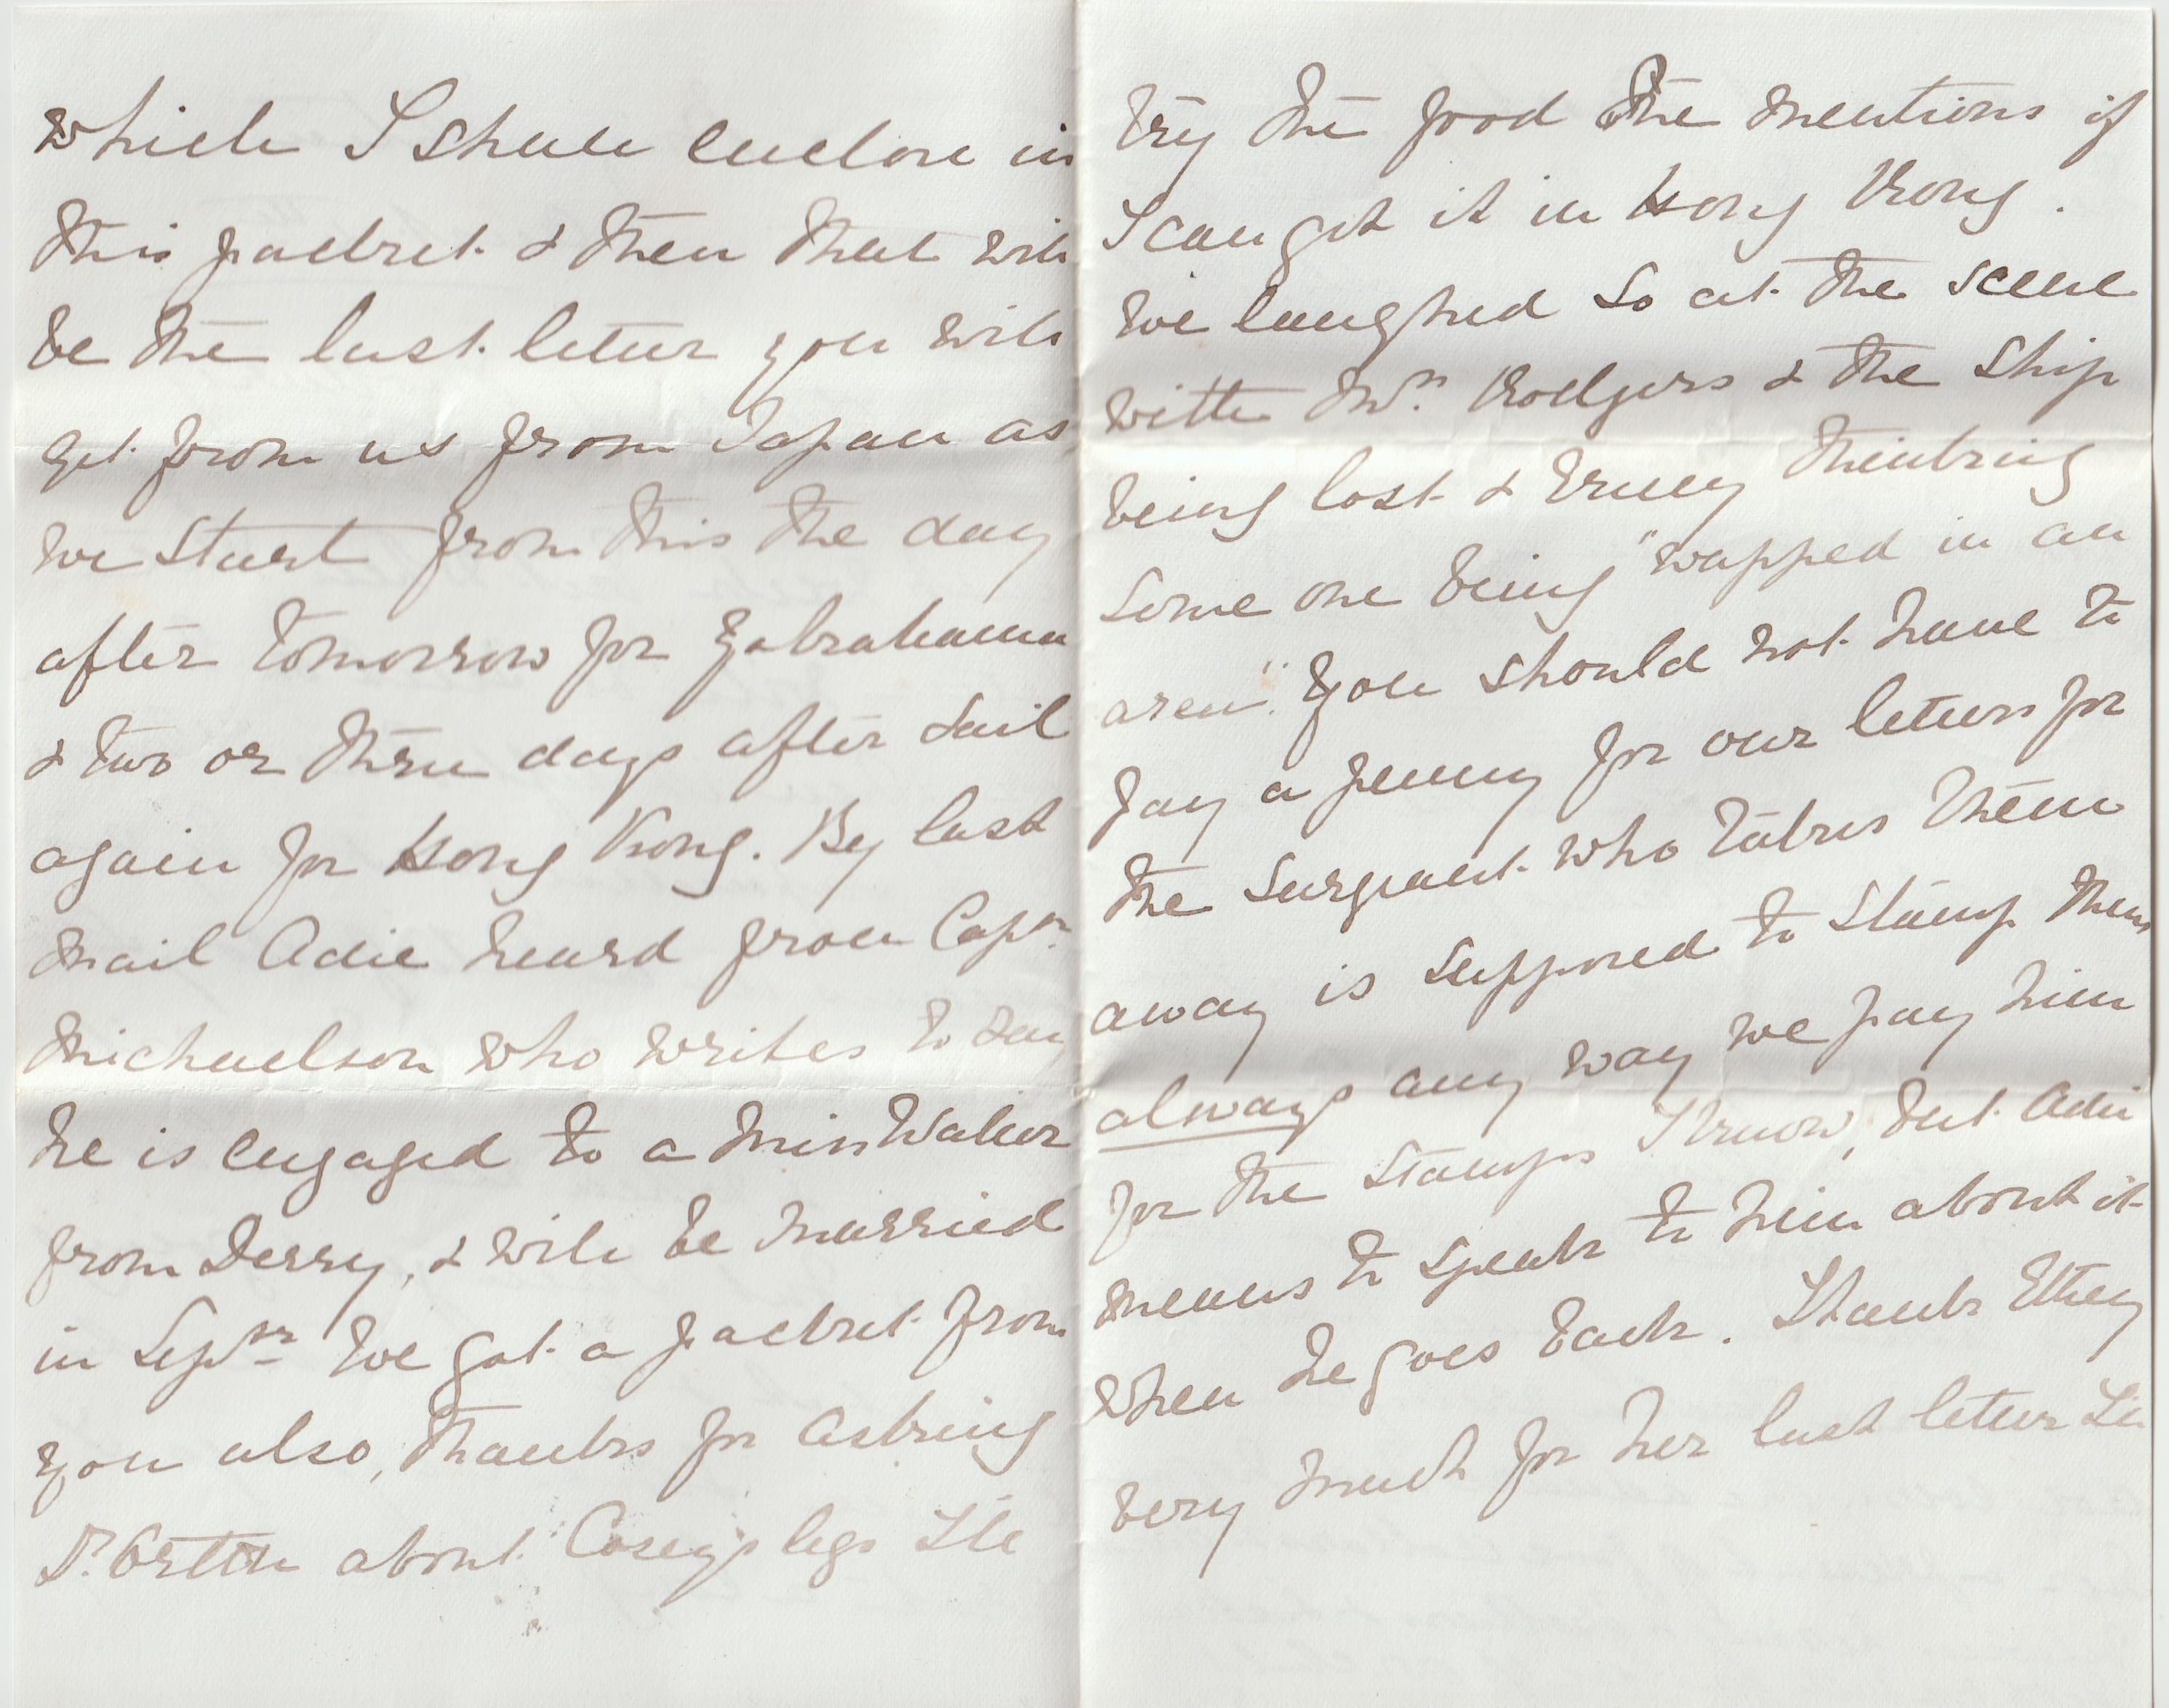 which I shall enclose in
this packet & then that will
be the last letter you will
get from us from Japan as
we start from this the day
after tomorrow for Yokohama
& two or three days after sail
again for Hong Kong. By last
mail Adie heard from Capn.
Michaelson who writes to say
he is engaged to a Miss Waller
from Derry, & will be married
in Septr. We got a packet from
you also, thanks for asking
Dr. about Caseys legs I'll
try the food he mentions if
I can get it in Hong Kong.
We laughed so at the scene
with Mrs. Rodgers & the ship
being lost & thinking
some one being "wapped in an
aren". You should not have to
pay a penny for our letters for
the Sergeant who takes them
away is supposed to stamp them
always any way we pay him
for the stamps I know, but Adie
means to speak to him about it
when he goes back. Thank Ethey
very much for her last letter